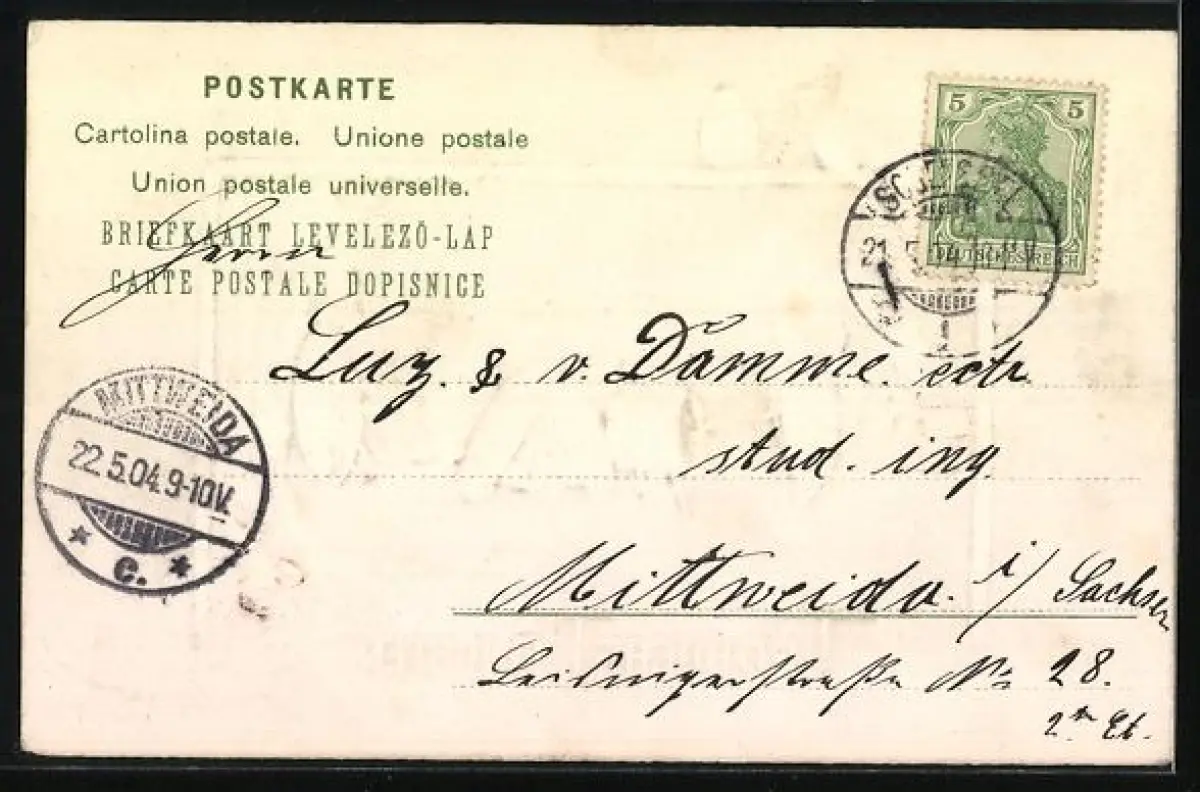 POSTKARTE
Cartolina postale. Unione postale
Union postale universelle.
BRIEFKAART LEVELEZŐ-LAP
CARTE POSTALE DOPISNICE
Herrn
5 5
DEUTSCHES REICH
21. 5. 04.
Luz. & v. Damme.
stud. ing.
Mittweida. i/Sachsen
Leisnigerstraße No 28.
2te Et.
MITTWEIDA
22.5.04.9-10V.
* c. *